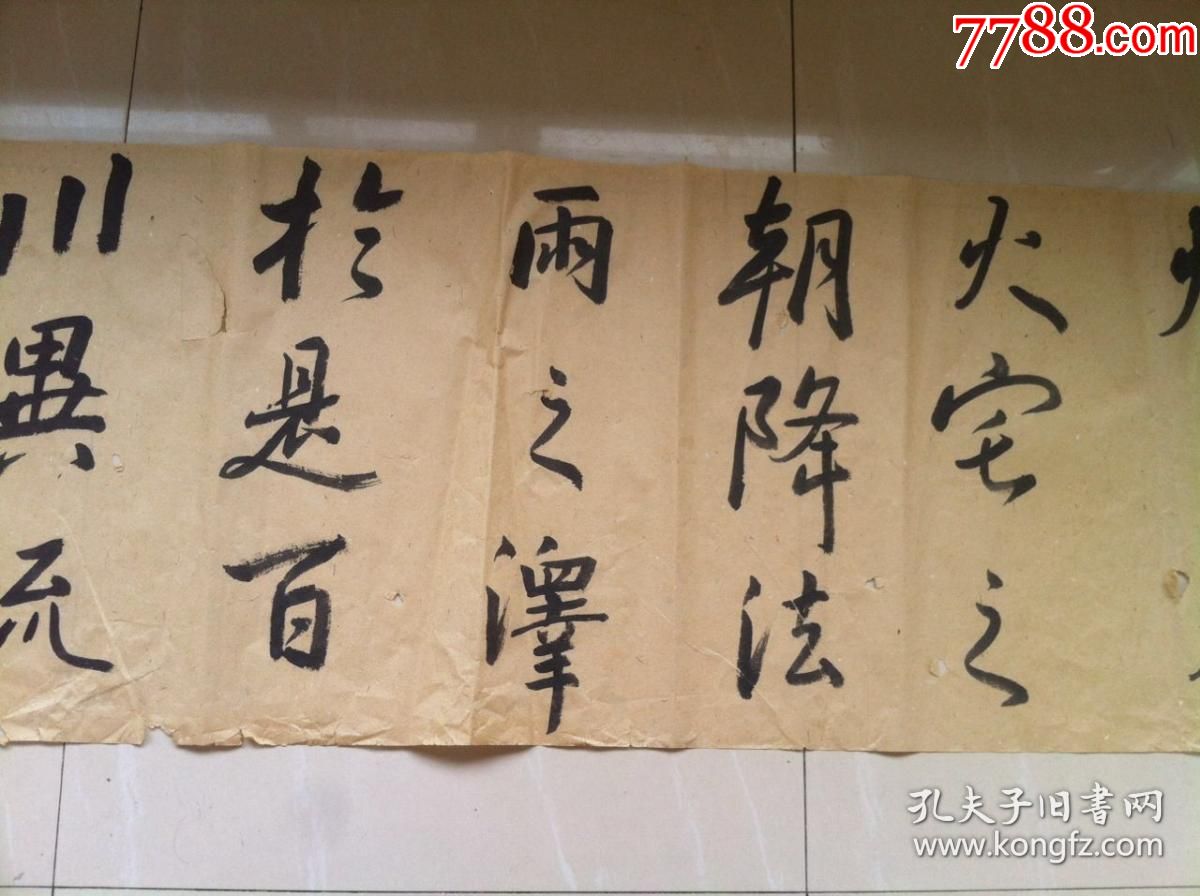 火宅之
朝降法
雨之澤
於是百
川異流
7788.com
孔夫子旧书网
www.kongfz.com